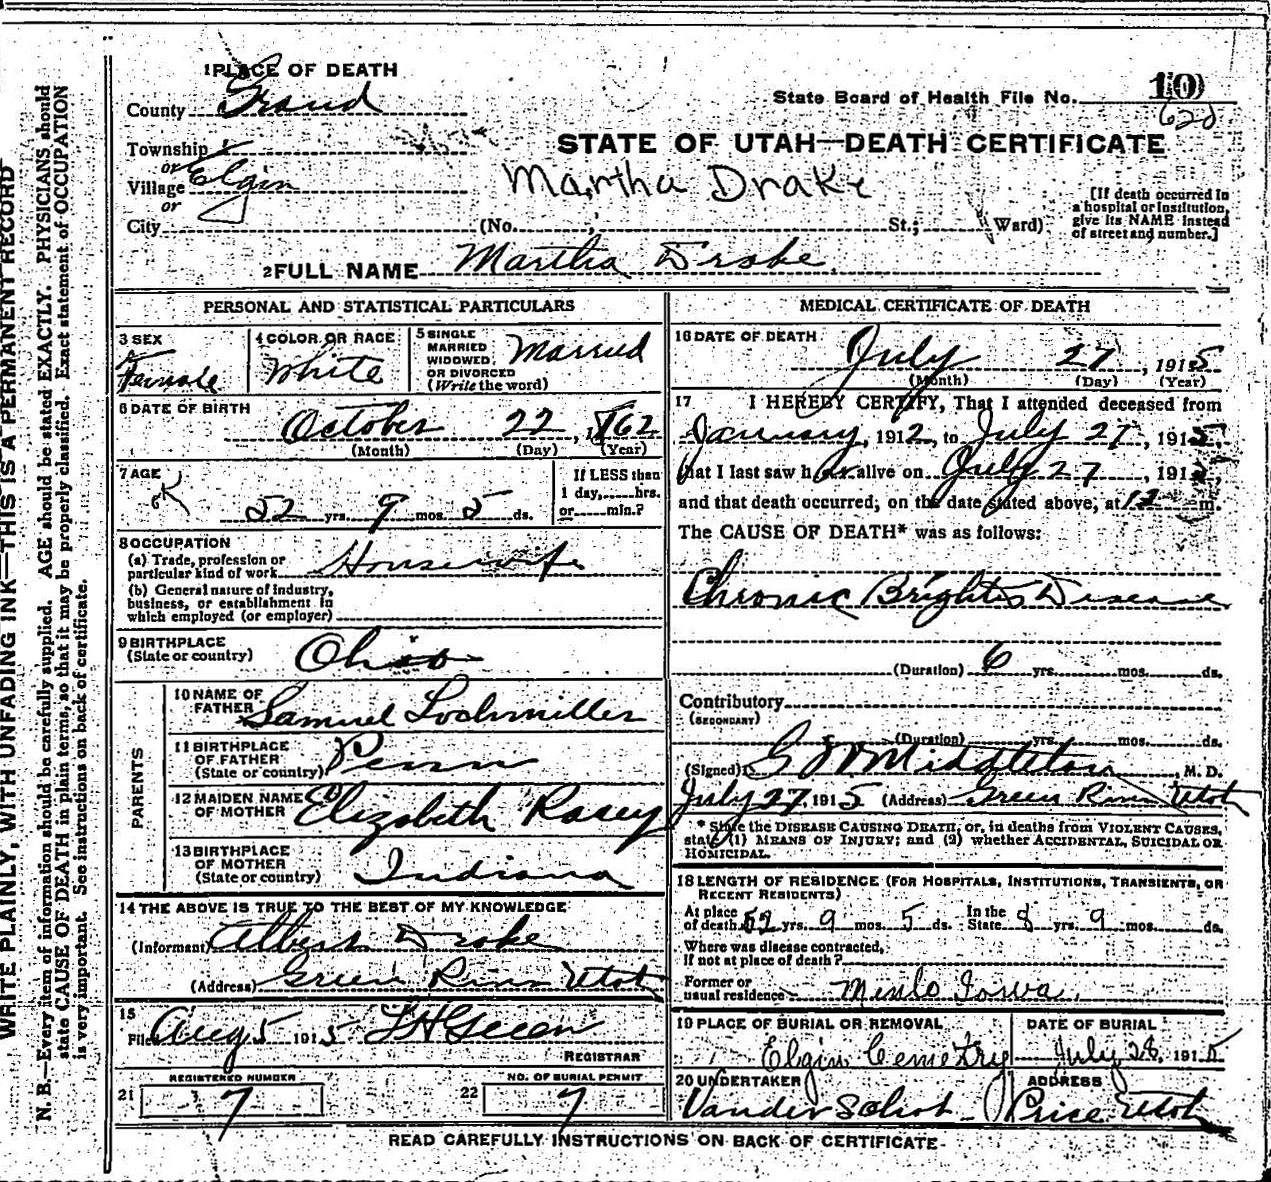 1 PLACE OF DEATH
County Grand
State Board of Health File No. 10
620
Township
or
Village Elgin
or
City
STATE OF UTAH—DEATH CERTIFICATE
Martha Drake
(No. ; St.; Ward)
[If death occurred in a hospital or institution, give its NAME instead of street and number.]
2 FULL NAME Martha Drake
PERSONAL AND STATISTICAL PARTICULARS
3 SEX
Female
4 COLOR OR RACE
White
5 SINGLE MARRIED WIDOWED, OR DIVORCED (Write the word)
Married
6 DATE OF BIRTH
October 22, 1862
(Month) (Day) (Year)
7 AGE
52 yrs. 9 mos. 5 ds.
If LESS than 1 day, hrs. or min.?
8 OCCUPATION
(a) Trade, profession or particular kind of work Housewife
(b) General nature of industry, business, or establishment in which employed (or employer)
9 BIRTHPLACE
(State or country) Ohio
PARENTS
10 NAME OF FATHER Samuel Lochmiller
11 BIRTHPLACE OF FATHER (State or country) Penn
12 MAIDEN NAME OF MOTHER Elizabeth Rasey
13 BIRTHPLACE OF MOTHER (State or country) Indiana
14 THE ABOVE IS TRUE TO THE BEST OF MY KNOWLEDGE
(Informant) Albert Drake
(Address) Green River Utah
15
Filed Aug 5 1915
REGISTRAR
REGISTERED NUMBER
21 7
NO. OF BURIAL PERMIT
22 7
MEDICAL CERTIFICATE OF DEATH
16 DATE OF DEATH
July 27, 1915
(Month) (Day) (Year)
17 I HEREBY CERTIFY, That I attended deceased from
January, 1912, to July 27, 1915,
that I last saw her alive on July 27, 191
and that death occurred, on the date stated above, at 12 m.
The CAUSE OF DEATH* was as follows:
Chronic Brights Disease
(Duration) 6 yrs. mos. ds.
Contributory
(SECONDARY)
(Duration) yrs. mos. ds.
(Signed) Middleton, M. D.
July 27, 1915 (Address) Green River Utah
* State the DISEASE CAUSING DEATH, or, in deaths from VIOLENT CAUSES, state (1) MEANS OF INJURY; and (2) whether ACCIDENTAL, SUICIDAL OR HOMICIDAL.
18 LENGTH OF RESIDENCE (FOR HOSPITALS, INSTITUTIONS, TRANSIENTS, OR RECENT RESIDENTS)
At place of death 52 yrs. 9 mos. 5 ds. In the State 8 yrs. 9 mos. ds.
Where was disease contracted,
If not at place of death?
Former or usual residence Menlo Iowa.
19 PLACE OF BURIAL OR REMOVAL
Elgin Cemetry
DATE OF BURIAL
July 28, 1915
20 UNDERTAKER
ADDRESS
Price Utah
READ CAREFULLY INSTRUCTIONS ON BACK OF CERTIFICATE
WRITE PLAINLY, WITH UNFADING INK—THIS IS A PERMANENT RECORD
N. B.—Every item of information should be carefully supplied. AGE should be stated EXACTLY. PHYSICIANS should
state CAUSE OF DEATH in plain terms, so that it may be properly classified. Exact statement of OCCUPATION
is very important. See instructions on back of certificate.